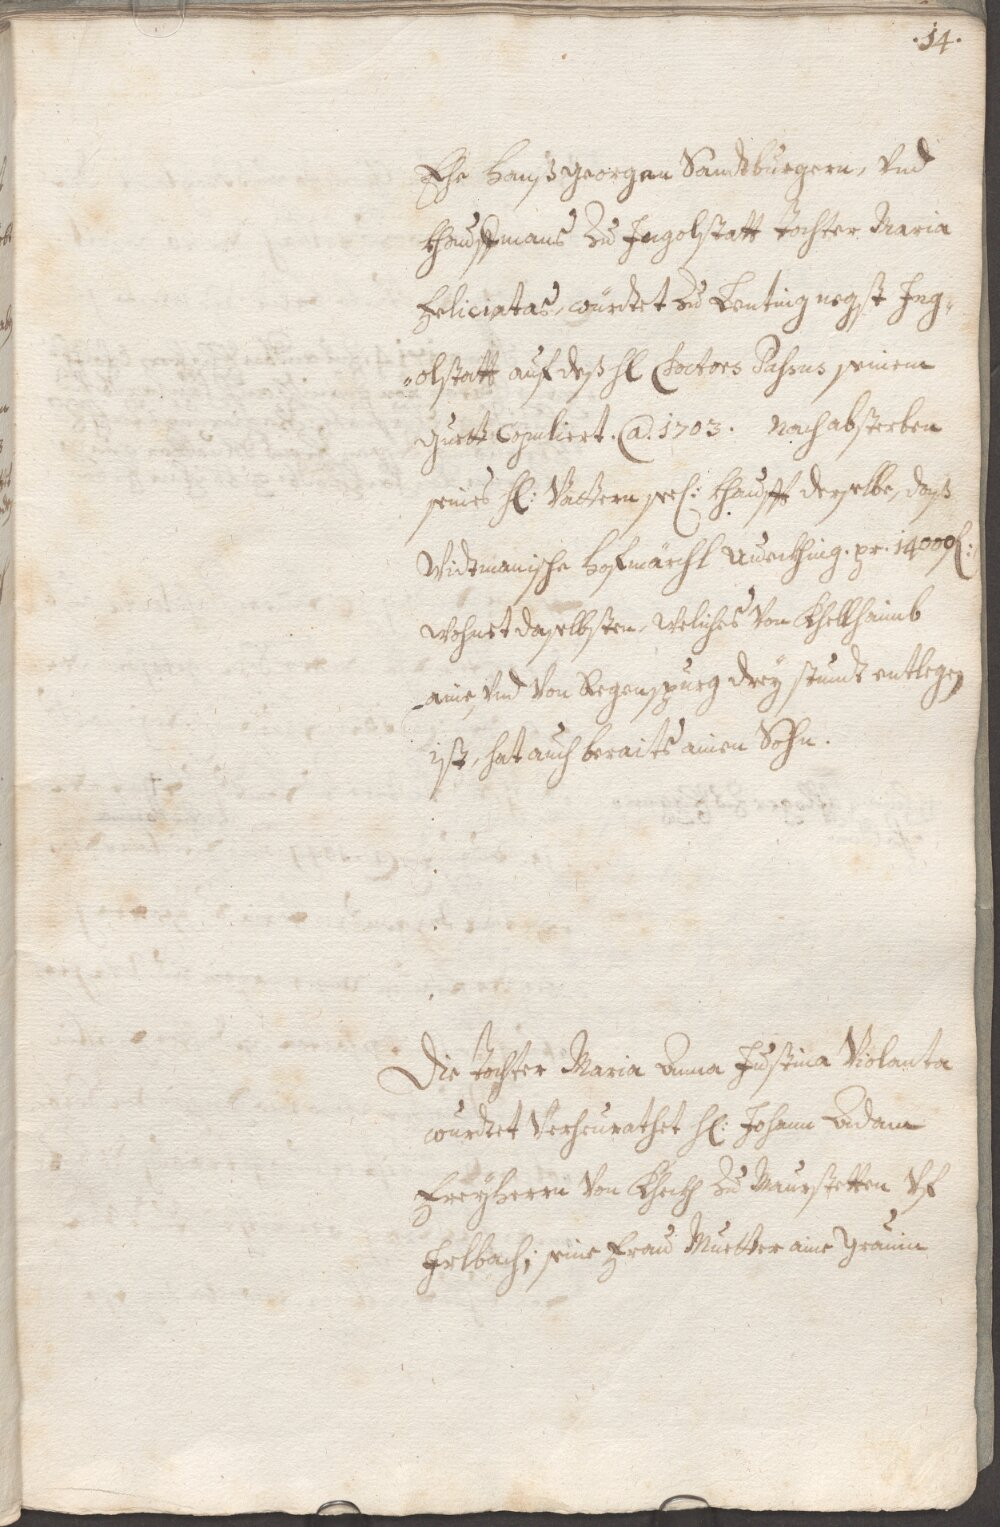 .14.
Ehe Hanß Georgen Sandtburgern, Vnd
khauffmans Zu Ingolstatt tochter Maria
Feliciatas, würdtet zu Lenting negst Ing=
=olstatt auf deß hl Doctors seinem
guett Copuliert. @. 1703. Nach absterben
seines hl: Vattern seel: khaufft derselbe, daß
Widtmanische hofmärchl . pr. 14000 f:
wohnet daselbsten, weliches Von Khellhaimb
aine, Vnd Von Regenspurg drey stundt entlegen
ist, hat auch beraits ainen Sohn.
Die tochter Maria Anna Justina Violanta
wurdtet Verheurathet hl: Johann Adam
Freyherrn Von zu Maurstetten Vf
Irlbach; seine Frau Muetter aine Gräuin